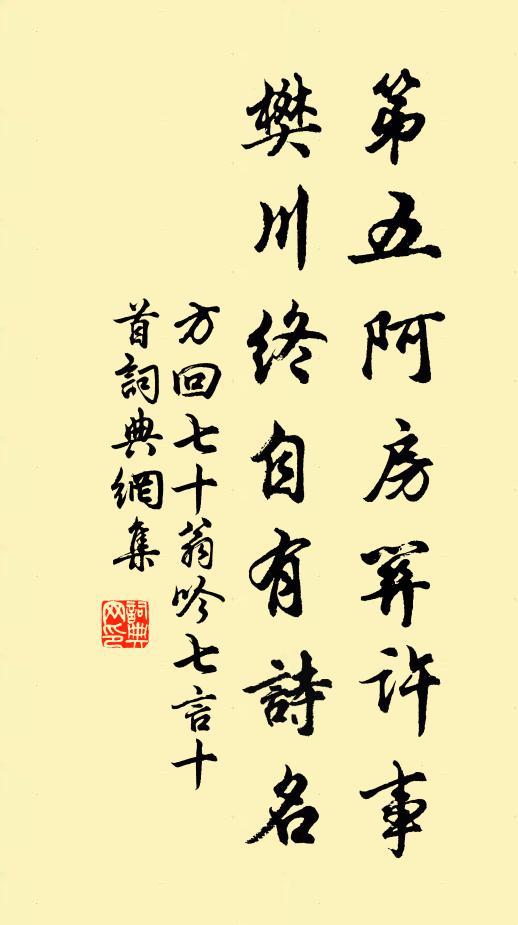 第五阿房關許事
樊川終自有詩名
方回七十翁吟七言十
首詞典網集
詞典
网印